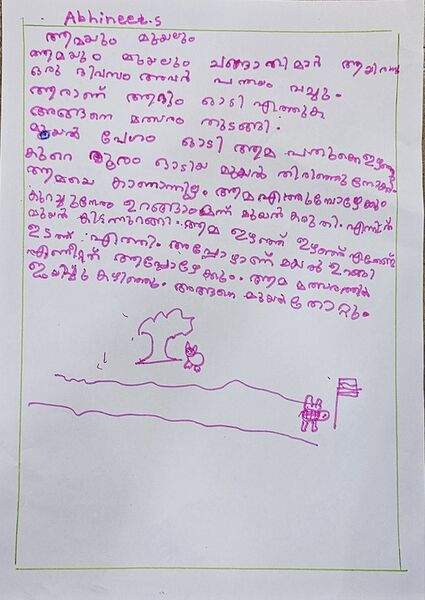 Abhineet.s
ആമയും മുയലും
ആമയും മുയലും ചങ്ങാതിമാർ ആയിരുന്നു
ഒരു ദിവസം അവർ പന്തയം വച്ചു.
ആരാണ് ആദ്യം ഓടി എത്തുക
അങ്ങനെ മത്സരം തുടങ്ങി.
മുയൽ വേഗം ഓടി ആമ പതുക്കെ ഇഴഞ്ഞു
കുറെ ദൂരം ഓടിയ മുയൽ തിരിഞ്ഞു നോക്കി.
ആമയെ കാണാനില്ല. ആമ എത്തുമ്പോഴേക്കും
കുറച്ചുനേരം ഉറങ്ങാം എന്ന് മുയൽ കരുതി. എന്നിട്ട്
മുയൽ കിടന്നുറങ്ങി. ആമ ഇഴഞ്ഞ് ഇഴഞ്ഞ്
ഇടത്ത് എത്തി. അപ്പോഴാണ് മുയൽ ഉറങ്ങി
എണീറ്റത് അപ്പോഴേക്കും. ആമ മത്സരത്തിൽ
ജയിച്ചു കഴിഞ്ഞു. അങ്ങനെ മുയൽ തോറ്റു.